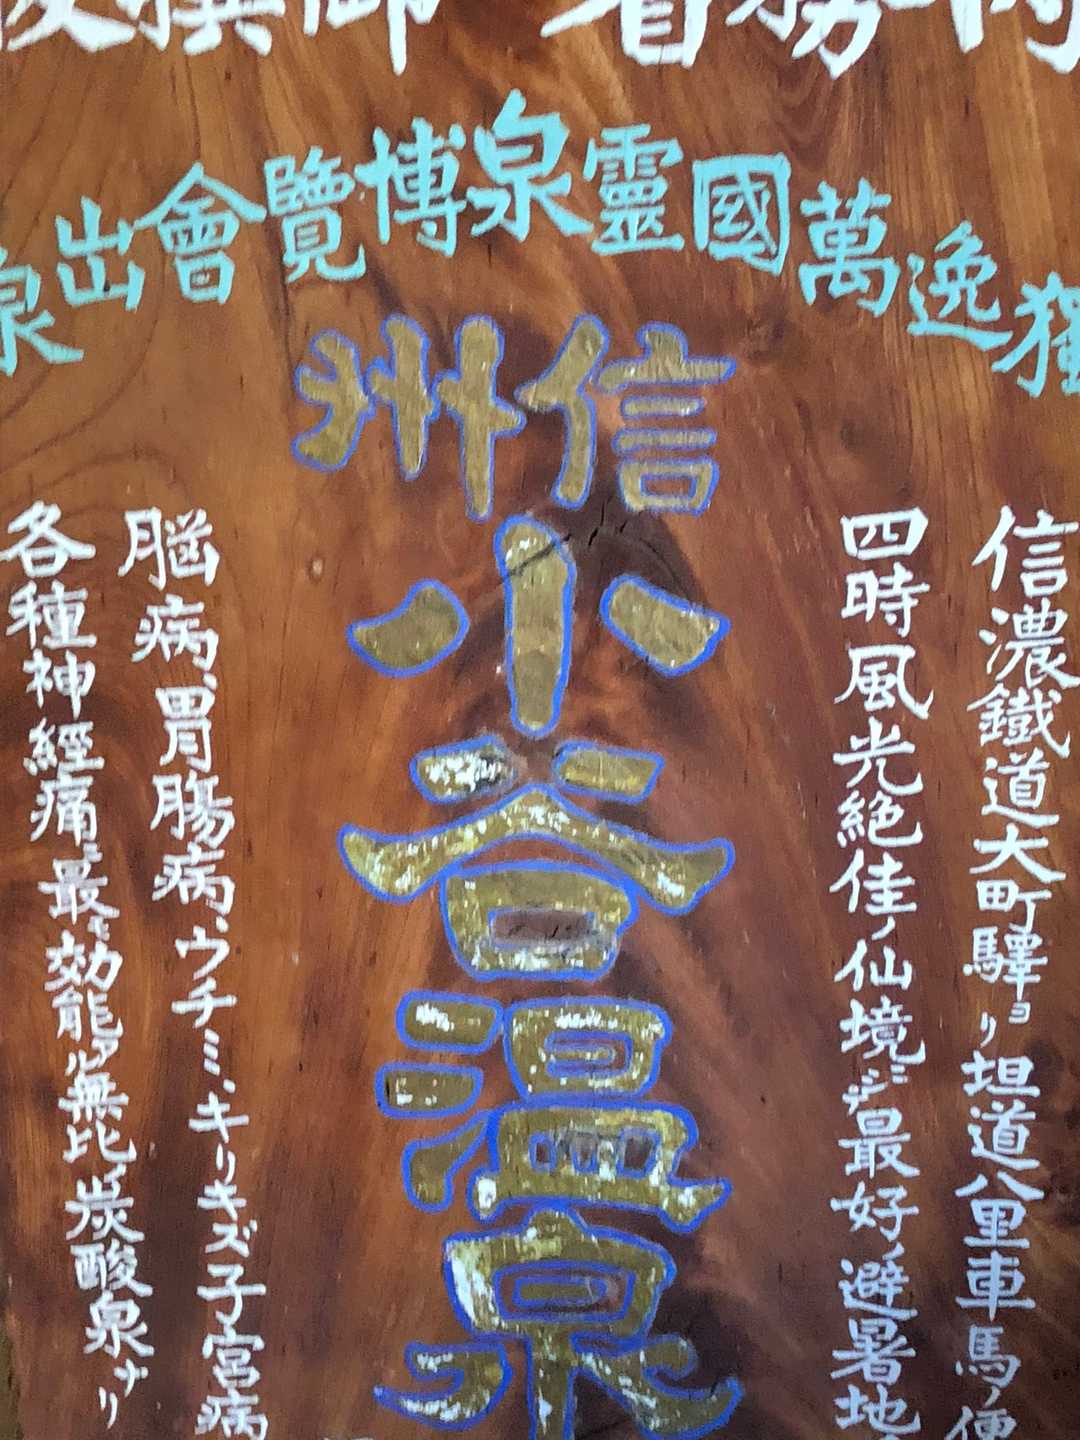 内務省 御
獨逸萬國靈泉博覽會出泉
信濃鐵道大町驛ヨリ坦道八里車馬ノ便
四時風光絶佳ノ仙境ニシテ最好ノ避暑地
信州
小谷温泉
脳病、胃腸病、ウチミ、キリキズ子宮病
各種神經痛ニ最モ効能アル無比ノ炭酸泉ナリ